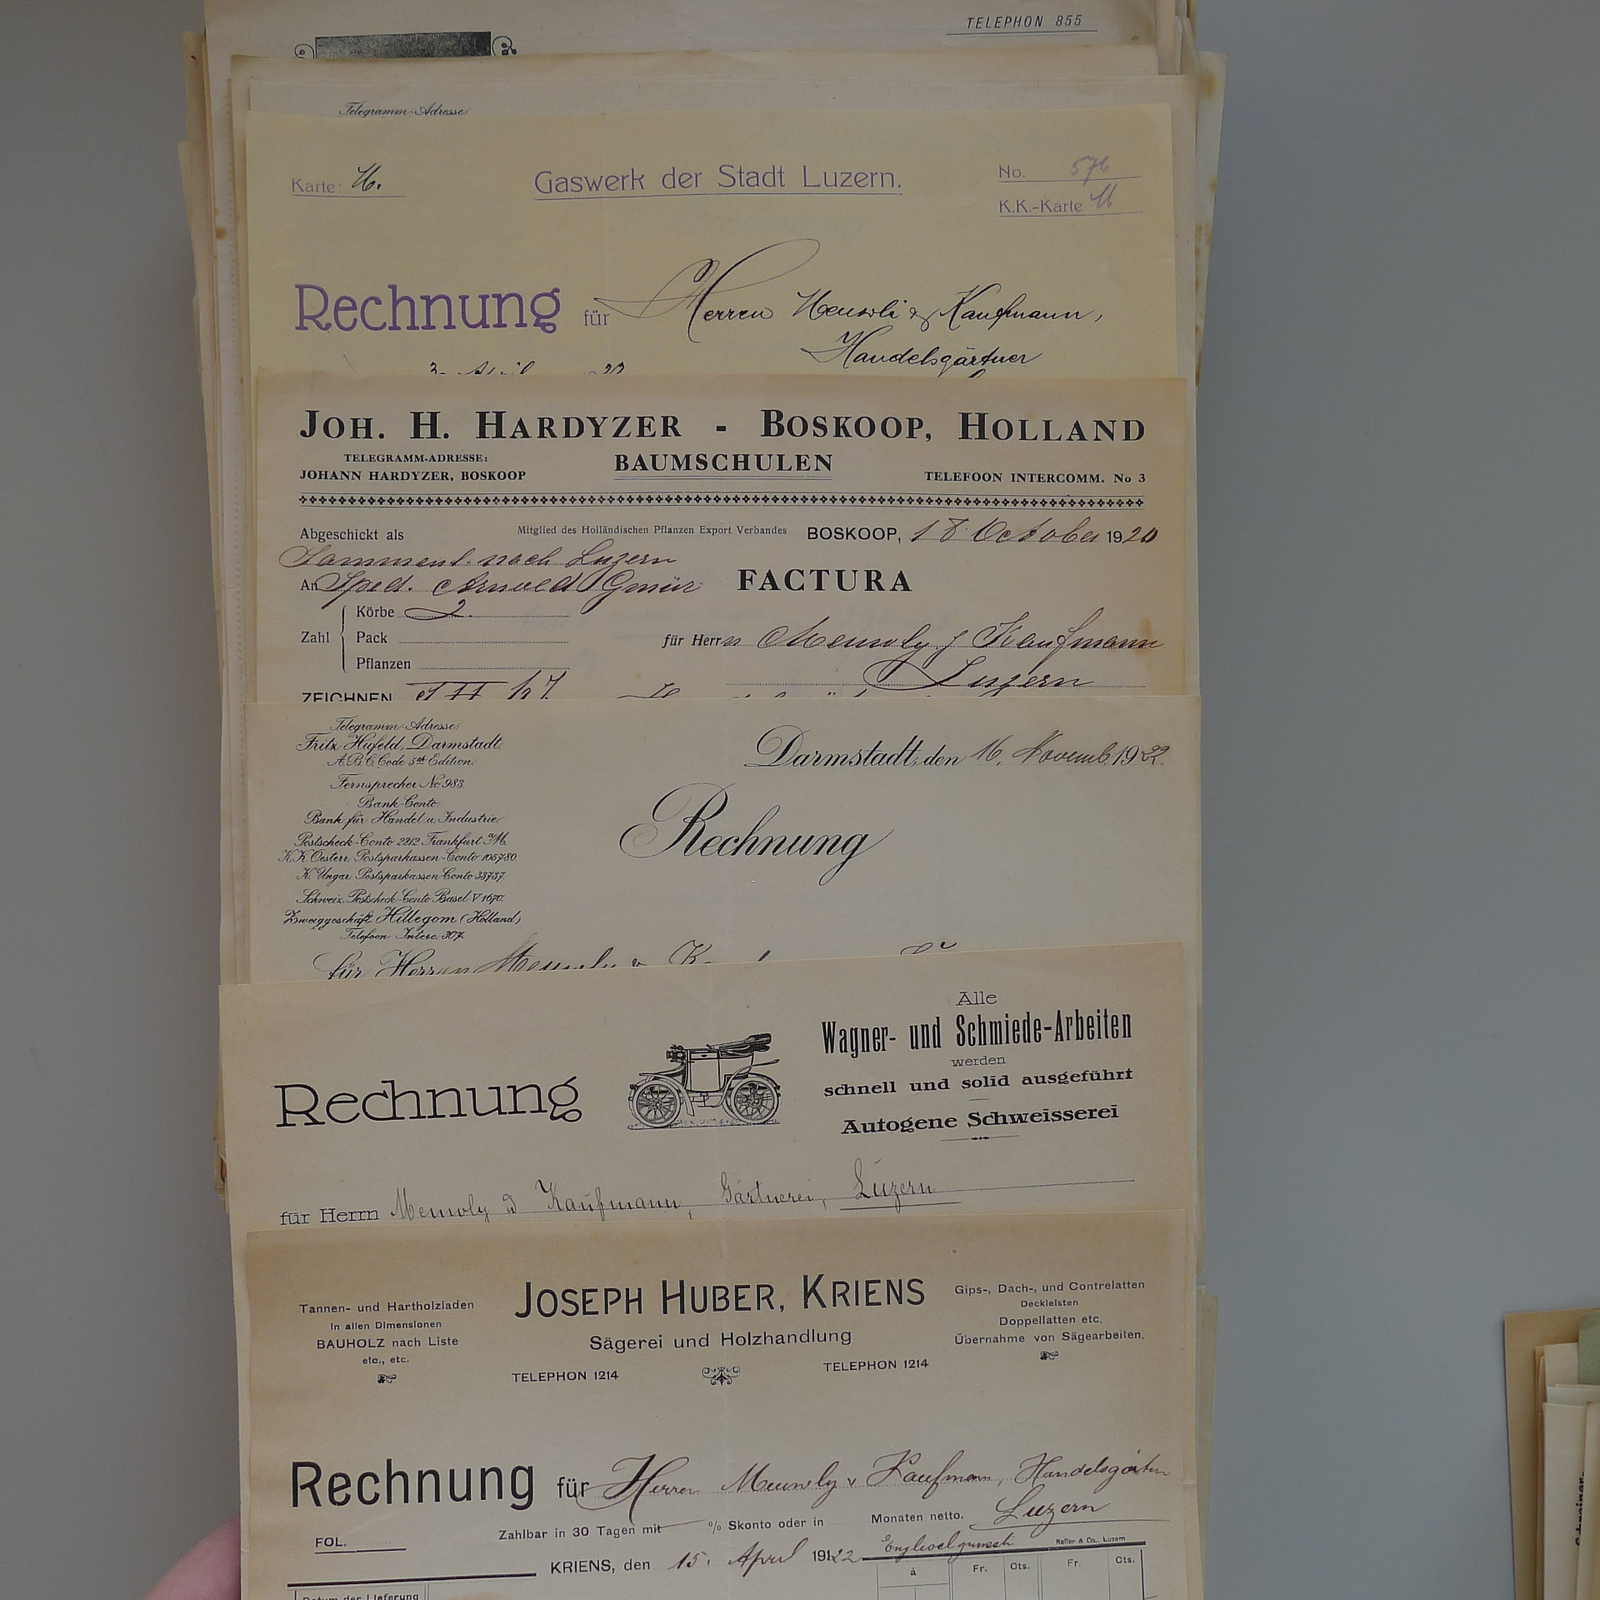 TELEPHON 855
Telegramm-Adresse
Karte: 16.
Gaswerk der Stadt Luzern.
No. 576
K.K.-Karte 16
Rechnung für Herren Meuwli & Kaufmann,
Handelsgärtner
3. April 22
JOH. H. HARDYZER - BOSKOOP, HOLLAND
TELEGRAMM-ADRESSE:
JOHANN HARDYZER, BOSKOOP
BAUMSCHULEN
TELEFOON INTERCOMM. No 3
Abgeschickt als
Mitglied des Holländischen Pflanzen Export Verbandes
BOSKOOP, 18 October 1920
nach Luzern
An Sped. Arnold Gmür
FACTURA
Zahl
Körbe 2.
Pack
Pflanzen
für Herrn Meuwly & Kaufmann
Luzern
ZEICHNEN
Telegramm-Adresse:
Fritz Hufeld, Darmstadt.
A.B.C. Code 5th Edition.
Fernsprecher No 983.
Bank-Conto:
Bank für Handel u. Industrie
Postscheck-Conto 2212 Frankfurt a/M.
K.K. Oesterr. Postsparkassen-Conto 105780.
K. Ungar. Postsparkassen-Conto 33737.
Schweiz. Postscheck-Conto Basel V 1670.
Zweiggeschäft Hillegom (Holland)
Telefoon Interc. 307.
Darmstadt, den 16. Novemb. 1922.
Rechnung
für Herren Meuwly u.
Rechnung
Alle
Wagner- und Schmiede-Arbeiten
werden
schnell und solid ausgeführt
Autogene Schweisserei
für Herrn Meuwly & Kaufmann, Gärtnerei, Luzern
Tannen- und Hartholzladen
in allen Dimensionen
BAUHOLZ nach Liste
etc., etc.
JOSEPH HUBER, KRIENS
Sägerei und Holzhandlung
TELEPHON 1214
TELEPHON 1214
Gips-, Dach-, und Contrelatten
Deckleisten
Doppellatten etc.
Übernahme von Sägearbeiten.
Rechnung für Herren Meuwly v Kaufmann, Handelsgärtn
Luzern
FOL.
Zahlbar in 30 Tagen mit % Skonto oder in Monaten netto.
KRIENS, den 15. April 1922
Keller & Co., Luzern
Datum der Lieferung
à
Fr. Cts. Fr. Cts.